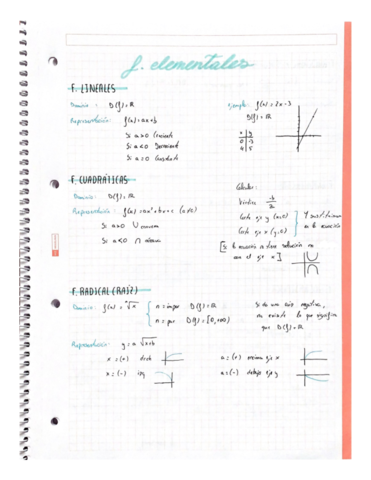 f. elementales
F. LINEALES
Dominio: D(f)=ℝ
Representación: f(x)=ax+b
Si a>0 Creciente
Si a<0 Decreciente
Si a=0 Constante
Ejemplo: f(x)=2x-3
D(f)=ℝ
x y
0 -3
4 5
F. CUADRÁTICAS
Dominio: D(f)=ℝ
Representación: f(x)=ax²+bx+c (a≠0)
Si a>0 ∪
Si a<0 ∩
Calcular:
Vértice
Corte eje y (x=0)
Corte eje x (y=0)
[Si la ecuación no tiene solución no
con el eje x]
F. RADICAL (RAÍZ)
Dominio: f(x)=ⁿ√x
n=impar D(f)=ℝ
n=par D(f)=[0,+∞)
Si da una raíz negativa,
no existe lo que significa
que D(f)=ℝ
Representación: y=a√x+b
x=(+) dcha
x=(-) izq
a=(+) encima eje x
a=(-) debajo eje